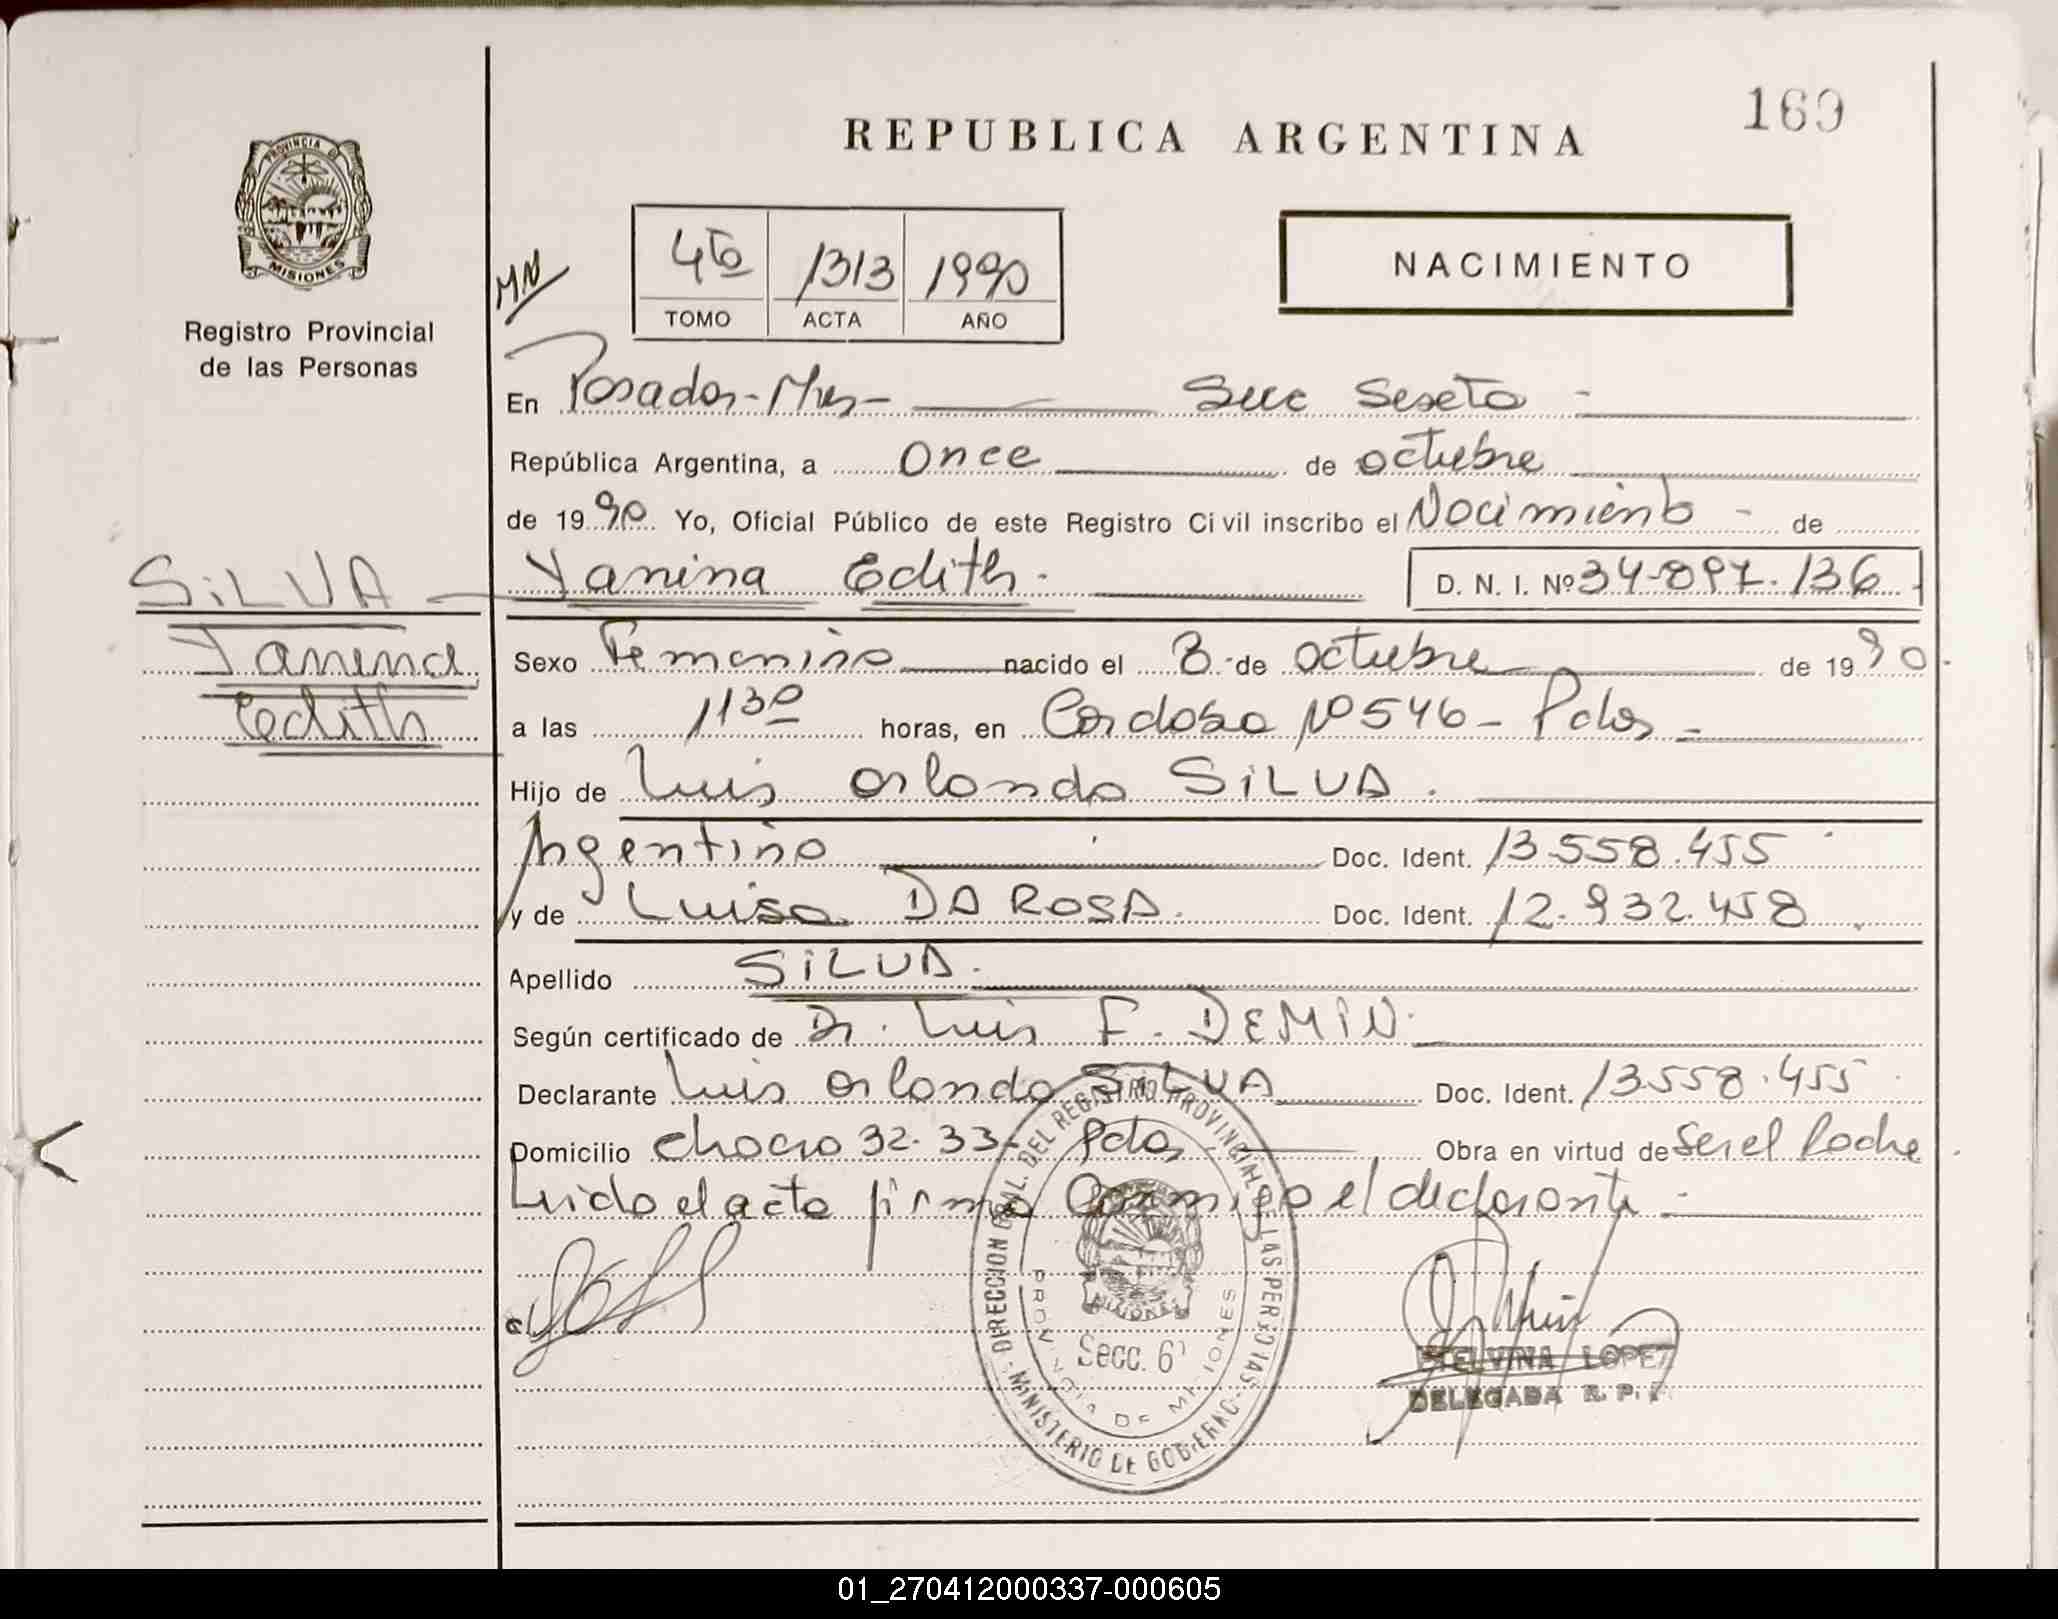 169
REPUBLICA ARGENTINA
PROVINCIA DE
MISIONES
Registro Provincial
de las Personas
MN
4to 1313 1990
TOMO ACTA AÑO
NACIMIENTO
En Posadas-Mnes- Secc Sexta -
República Argentina, a once de octubre
de 1990 Yo, Oficial Público de este Registro Civil inscribo el Nacimiento - de
SILVA
Yanina
Edith
Yanina Edith. D. N. I. Nº 34-897.136
Sexo Femenino nacido el 8 de octubre de 1990.
a las 1130 horas, en Cordoba Nº 546 - Pdas -
Hijo de Luis Orlando SILVA.
Argentino Doc. Ident. 13.558.455
y de Luisa DA ROSA. Doc. Ident. 12.932.458
Apellido SILVA.
Según certificado de Dr. Luis F. DEMIN.
Declarante Luis Orlando SILVA Doc. Ident. 13.558.455
Domicilio Chacra 32-33- Pdas Obra en virtud de Ser el Padre
Leido el acta firma Conmigo el declarante -
DIRECCION GRAL. DEL REGISTRO PROVINCIAL DE LAS PERSONAS - MINISTERIO DE GOBIERNO -
PROVINCIA DE MISIONES
MISIONES
Secc. 6ª
LOPEZ
DELEGADA R. P. P.
01_270412000337-000605